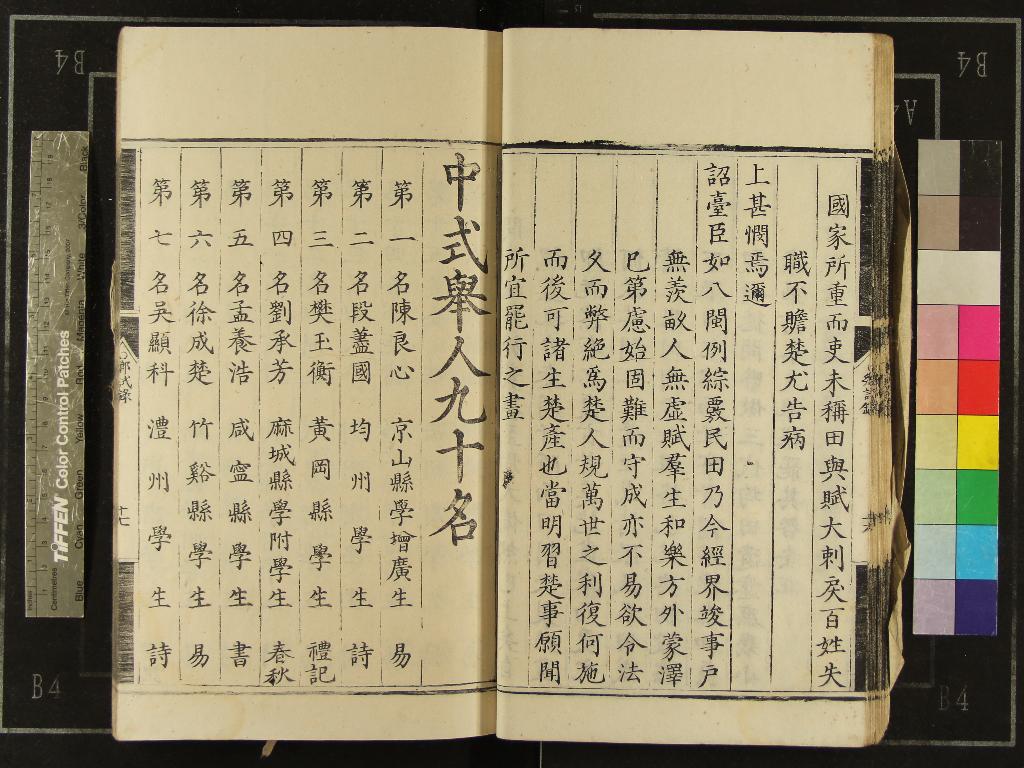 國家所重而吏未稱田與賦大刺戾百姓失
職不贍楚尤告病
上甚憫焉邇
詔臺臣如八閩例綜覈民田乃今經界竣事戶
無羨畝人無虛賦羣生和樂方外蒙澤
已第慮始固難而守成亦不易欲令法
久而弊絕爲楚人規萬世之利復何施
而後可諸生楚產也當明習楚事願聞
所宜罷行之畫
中式舉人九十名
第一名陳良心 京山縣學增廣生 易
第二名段藎國 均州學生 詩
第三名樊玉衡 黃岡縣學生 禮記
第四名劉承芳 麻城縣學附學生 春秋
第五名孟養浩 咸寧縣學生 書
第六名徐成楚 竹谿縣學生 易
第七名吳顯科 澧州學生 詩
十七
B4
B4
B4
B4
A
TIFFEN Color Control Patches
Blue
Cyan
Green
Yellow
Red
Magenta
White
3/Color
Black
Inches
Centimetres